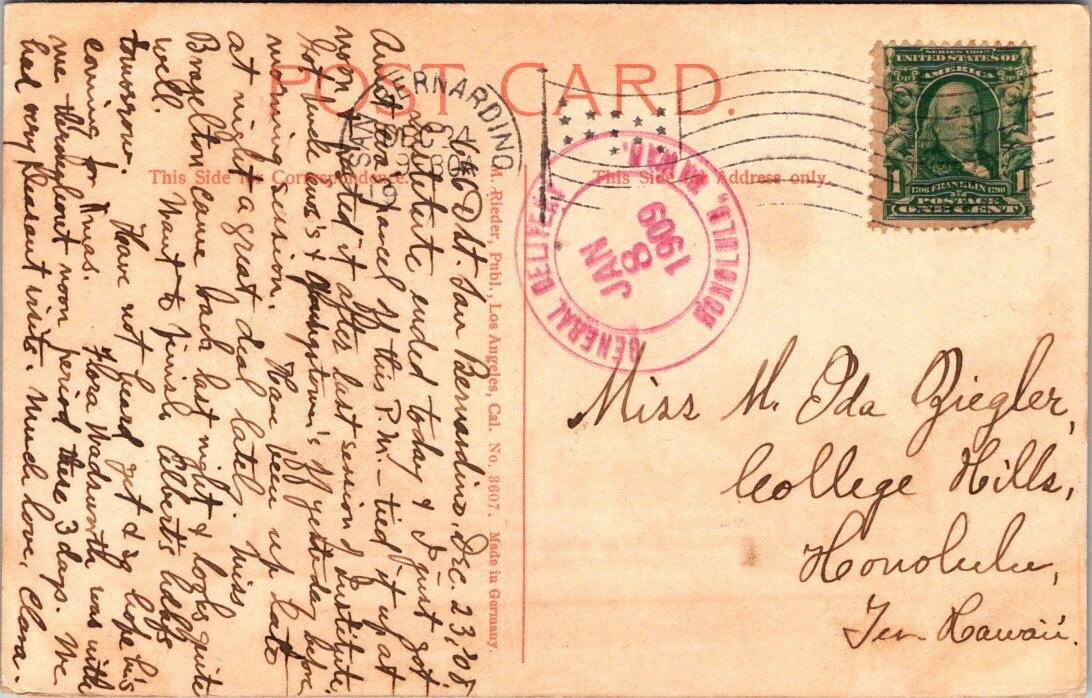 POST CARD.
This Side for Correspondence.
This Side for Address only.
SERIES 1902
UNITED STATES OF
AMERICA
1 1706 FRANKLIN 1790 1
POSTAGE
ONE CENT
BERNARDINO
DEC 24
830A
19
GENERAL DELIVERY
HONOLULU, HAWAII.
JAN
8
1909
Miss M. Ida Ziegler,
College Hills,
Honolulu,
Ter. Hawaii.
M. Rieder, Publ., Los Angeles, Cal. No. 3607. Made in Germany.
6 D St. San Bernardino, Dec. 23, '08
Institute ended today & I just got
parcel off this P.M. – tied it up at
noon & it after last session of Institute,
Got Jude ins's & Youngstown's off yesterday before
morning session. Have been up late
at night a great deal lately. Miss
Brayelton came back last night & looks quite
well. Want to finish Elbert's
tomorrow. Have not heard yet & hope he's
coming for Xmas. Flora Wadsworth was with
me throughout noon period these 3 days. We
had very pleasant visits. Much love, Clara.